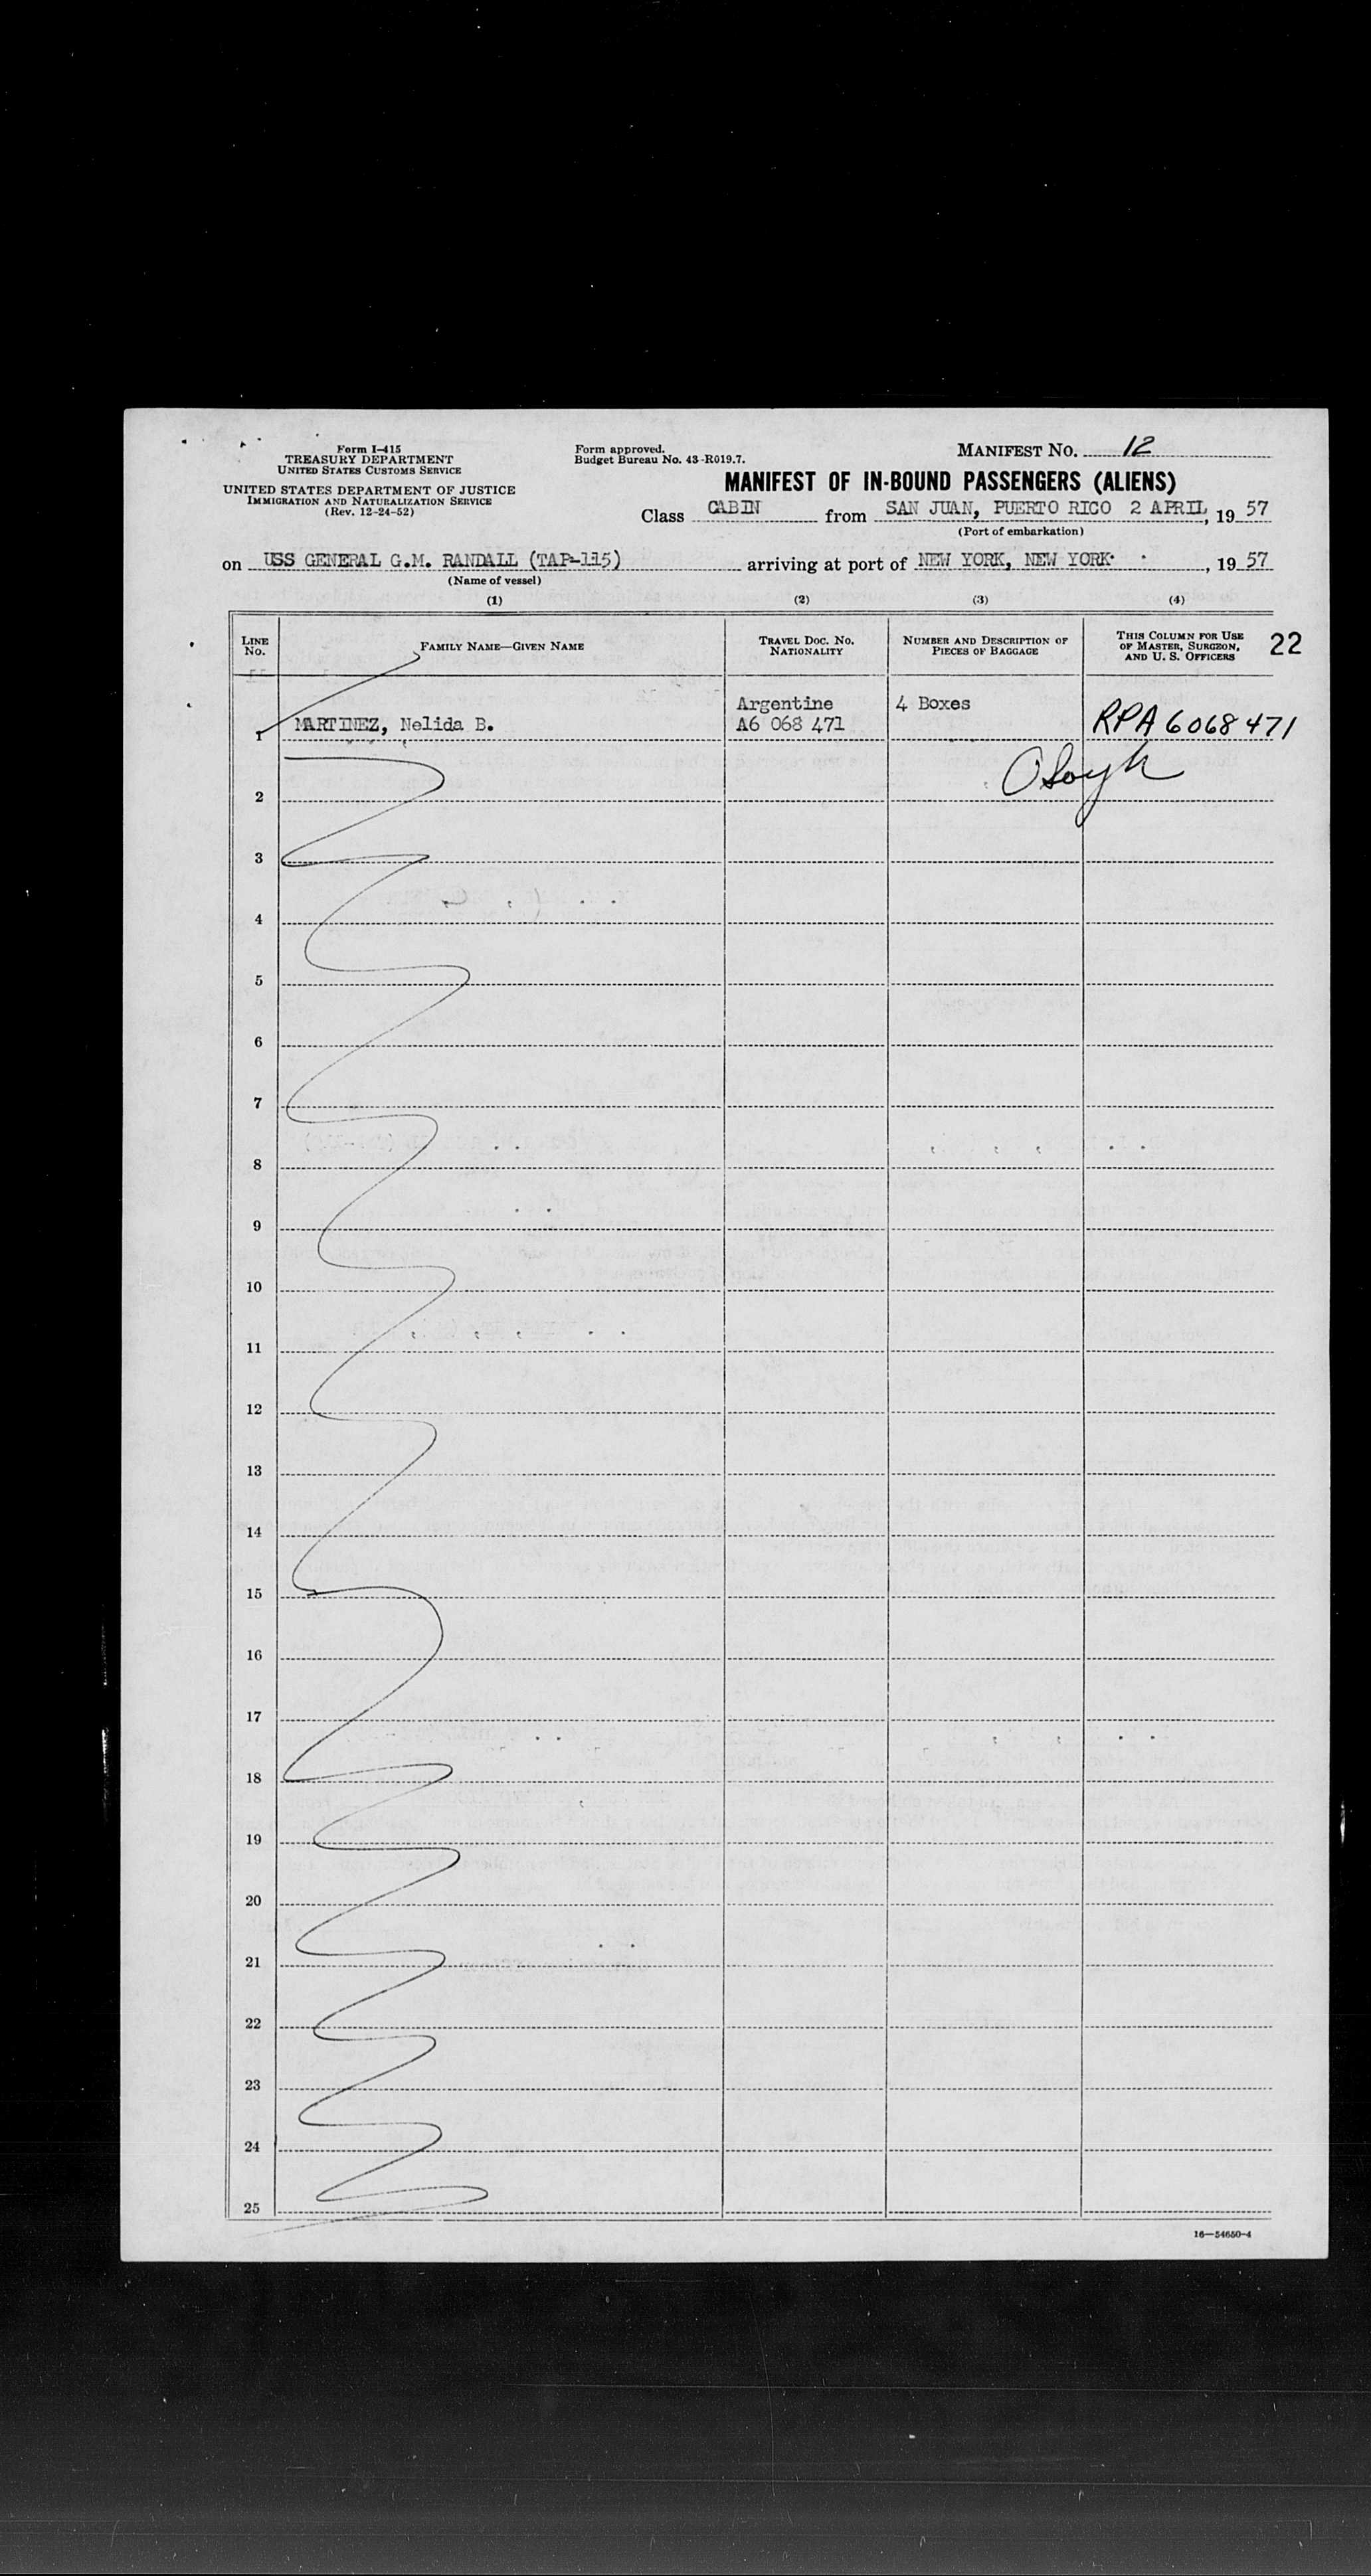 Form I-415
TREASURY DEPARTMENT
UNITED STATES CUSTOMS SERVICE
UNITED STATES DEPARTMENT OF JUSTICE
IMMIGRATION AND NATURALIZATION SERVICE
(Rev. 12-24-52)
Form approved.
Budget Bureau No. 43-R019.7.
MANIFEST NO. 12
MANIFEST OF IN-BOUND PASSENGERS (ALIENS)
Class CABIN from SAN JUAN, PUERTO RICO 2 APRIL, 19 57
(Port of embarkation)
on USS GENERAL G.M. RANDALL (TAP-115) arriving at port of NEW YORK, NEW YORK, 19 57
(Name of vessel)
(1) (2) (3) (4)
LINE NO. FAMILY NAME—GIVEN NAME TRAVEL DOC. NO. NATIONALITY NUMBER AND DESCRIPTION OF PIECES OF BAGGAGE THIS COLUMN FOR USE OF MASTER, SURGEON, AND U. S. OFFICERS 22
Argentine 4 Boxes
1 MARTINEZ, Nelida B. A6 068 471 RPA 6068471
2
3
4
5
6
7
8
9
10
11
12
13
14
15
16
17
18
19
20
21
22
23
24
25
16—54650-4